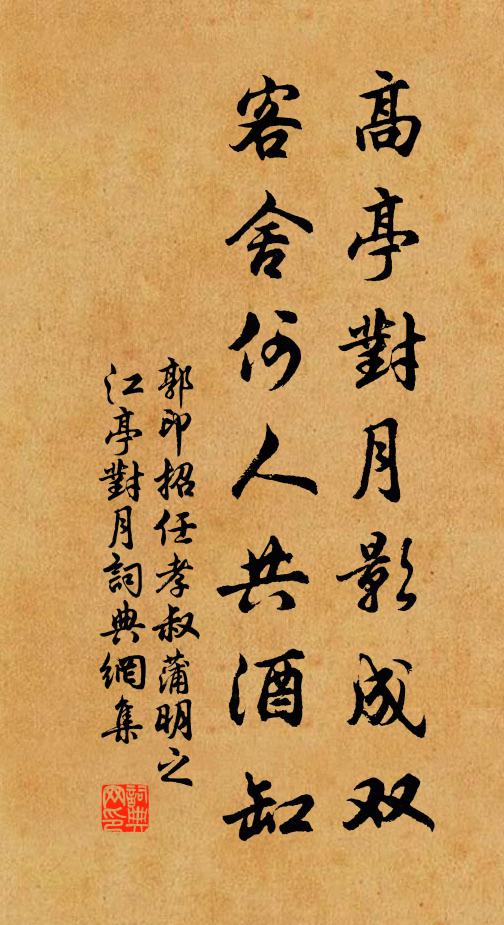 高亭對月影成双
客舍何人共酒缸
郭印招任孝叔蒲明之
江亭對月詞典網集
詞典
网印